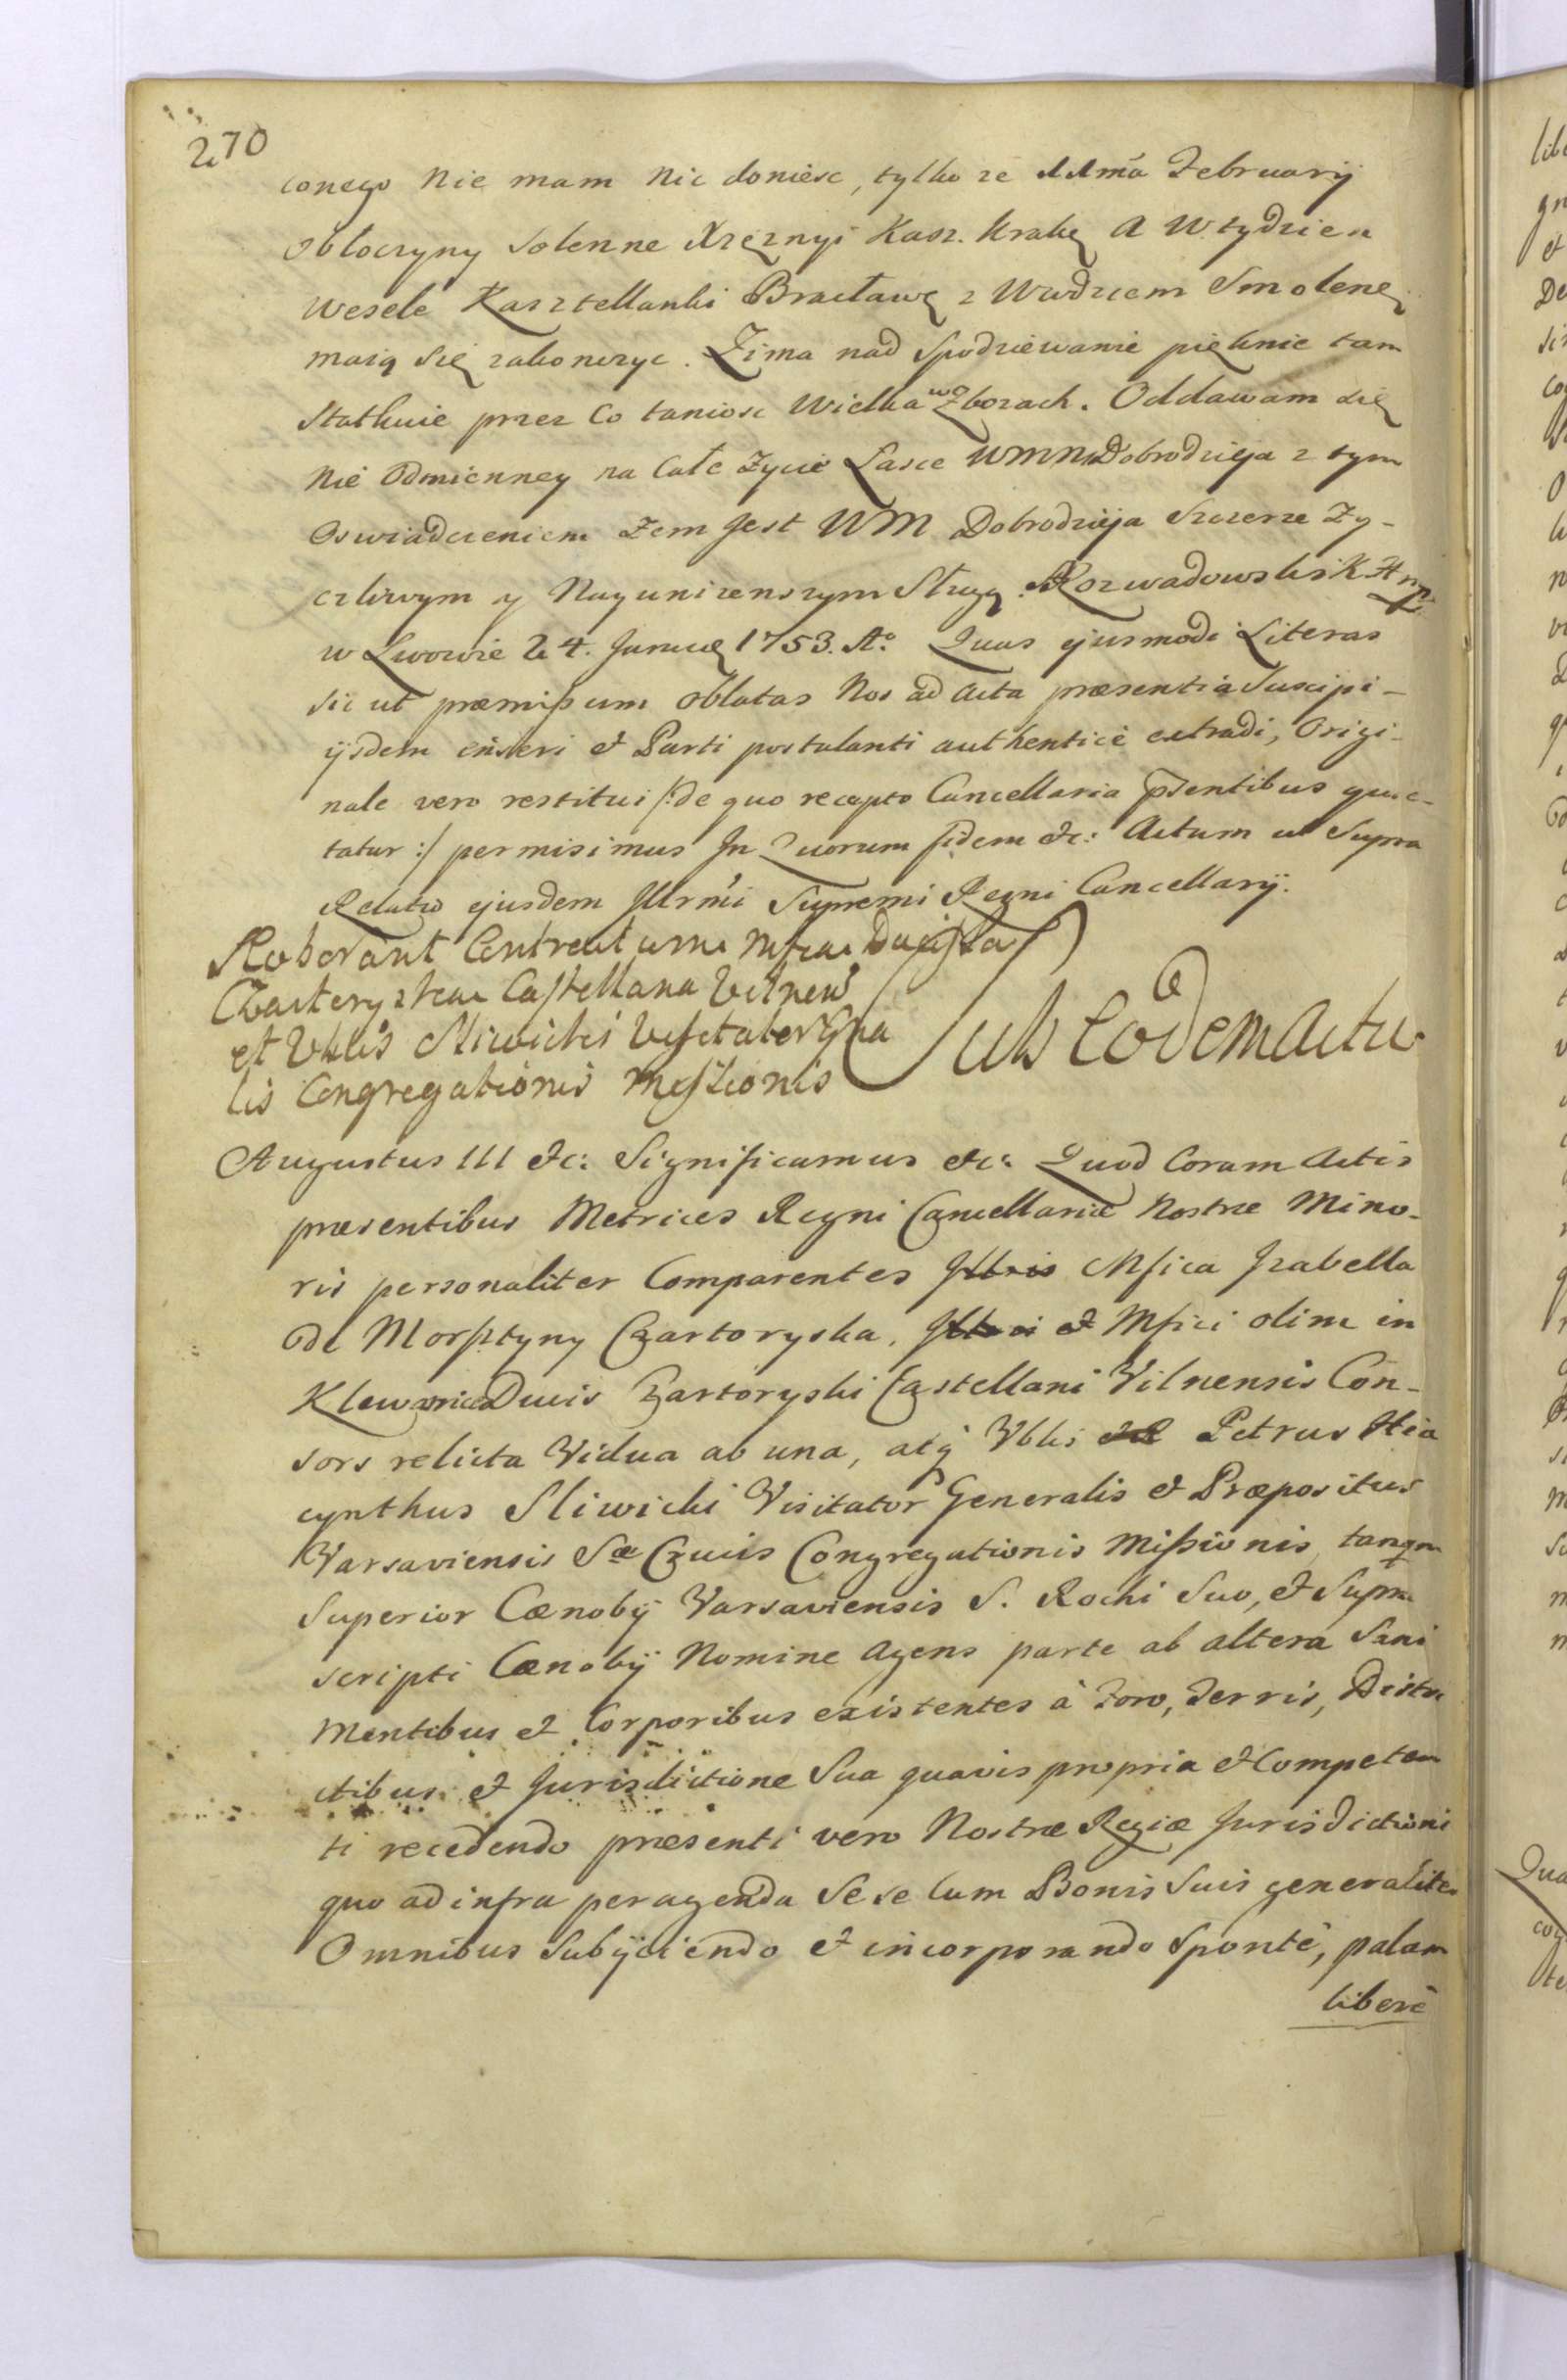 270
conego Nie mam Nic doniesc, tylko ze 11mã Februarij
Obłoczyny Solenne Xręznyi Kasz. Krakę A W tydzien
Wesele Kasztellanki Bracławę z Wwdzcem Smolenę
maią się zakonczyc. Zima nad Spodziewanie pięknie tam
Statkuie przez Co taniosc Wielka wo Zbozach. Oddawam się
Nie Odmienney na Całe Zycie Łasce WMM Dobrodzieja z tym
Oswiadczeniem Zem Jest WM Dobrodzieja Szczerze Zy-
czliwym y Nayunizenszym Sługą. Rozwadowski K
w Lwowie 24. Januę 1753. A.° Quas ejusmodi Literas
sic ut præmissum oblatas Nos ad Acta præsentia Suscipi-
ijsdem inseri et Parti postulanti authenticè extradi, Origi-
nale vero restitui /:de quo recepto Cancellaria p̃sentibus quie-
tatur:/ permisimus In Quorum fidem etc: Actum ut Supra
Relatio ejusdem Illrm̃i Supremi Regni Cancellarij.
Roborant Contractum Mfcae Ducissa
Czartoryskae Castellana Vilnen
et Vblis Sliwicki Visitator Gña
lis Congregationis Missionis
Sub Eodem Actu
Augustus III etc: Significamus etc: Quod Coram Actis
præsentibus Metrices Regni Cancellariæ Nostræ Mino-
ris personaliter Comparentes Illris Mfica Izabella
de Morsztyny Czartoryska, Illris et Mfici olim in
Klewan Ducis Czartoryski Castellani Vilnensis Con-
sors relicta Vidua ab una, atq Vblis Petrus Hia
cynthus Sliwicki Visitator Generalis et Præpositus
Varsaviensis Sæ Crucis Congregationis Missionis, tanqm
Superior Cænobij Varsaviensis S. Rochi Suo, et Supra
scripti Cænobij Nomine Agens parte ab altera Sani
Mentibus et Corporibus existentes à Foro, Terris, Distri
ctibus et Jurisdictione Sua quavis propria et Competen
ti recedendo præsenti vero Nostræ Regiæ Jurisdictioni
quo ad infra peragenda Sese Cum Bonis Suis generaliter
Omnibus Subijciendo et incorporando Sponte, palam
liberè